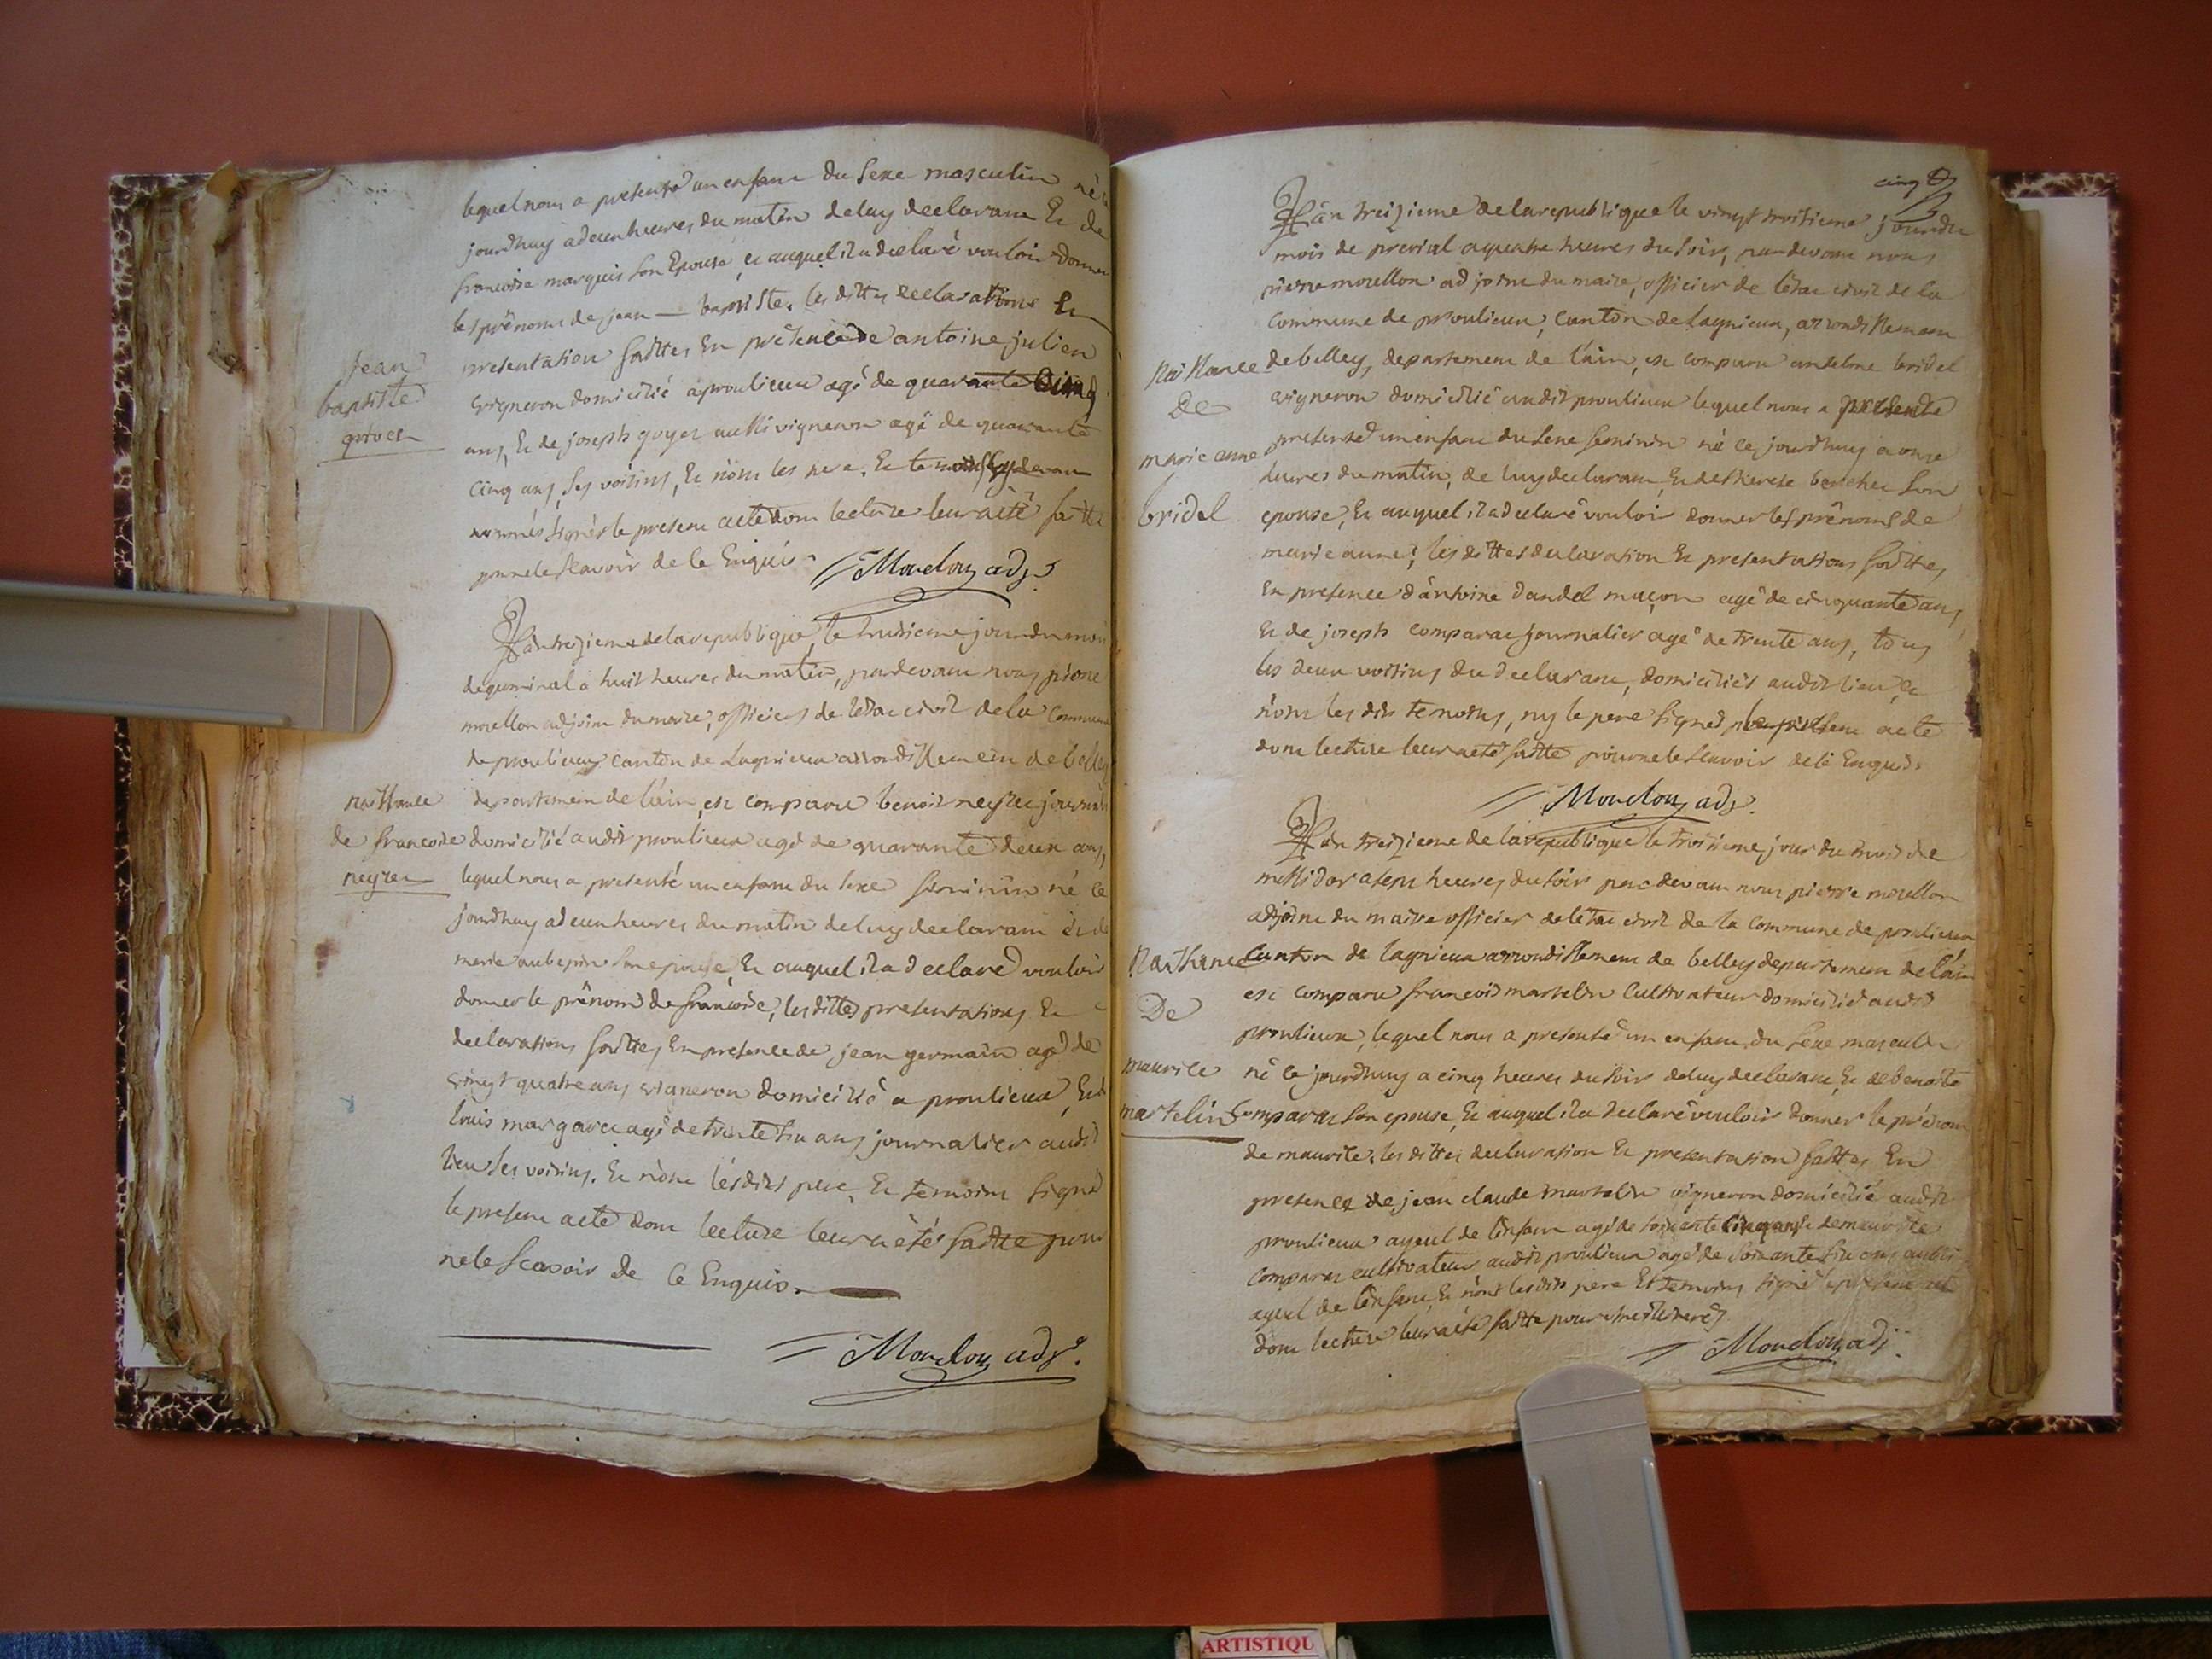 lequel nous a presenté un enfant du sexe masculin né ce
jourdhuy a deux heures du matin de luy declarant Et de
francoise marquis son Epouse et auquel il a declaré vouloir donner
les prénoms de jean — baptiste. les dittes declarations Et
presentation faittes En présence de antoine julien
vigneron domicilié a proulieu agé de quarante cinq
ans, Et de joseph goyet aussi vigneron agé de quarante
cinq ans, ses voisins, Et n'ont les pere, Et temoins cy devant
nommés signés le present acte dont lecture leur a été faitte
pour ne le scavoir de ce Enquis
Mouelou adj.
Jean
baptiste
L'an treizieme de la republique, le huitieme jour du mois
de germinal a huit heures du matin, pardevant nous pierre
mouellon adjoint du maire, officier de l'etat civil de la commune
de proulieu canton de Lagnieux arrondissement de belley
departement de l'ain, est comparu benoit neyret journalier
domicilié audit proulieux agé de quarante deux ans,
lequel nous a presenté un enfant du sexe feminin né ce
jourdhuy a deux heures du matin de luy declarant et de
marie aubepin son epouse, Et auquel il a declaré vouloir
donner le prénom de francoise, les dittes presentations Et
declarations faittes En presence de jean germain agé de
vingt quatre ans vigneron domicilié a proulieux, Et de
louis margaret agé de trente six ans journalier audit
lieu ses voisins. Et n'ont lesdits pere, Et temoins signé
le present acte dont lecture leur a été faitte pour
ne le scavoir de ce Enquis.
Mouelou adj.
naissance
de francoise
neyret
cinq
L'an treizieme de la republique le vingt troisieme jour du
mois de prerial a quatre heures du soir, pardevant nous
pierre mouellon adjoint du maire, officier de l'etat civil de la
commune de proulieux, canton de lagnieux, arrondissement
de belley, departement de l'ain, est comparu antelme bridel
vigneron domicilié audit proulieux lequel nous a presenté
presenté un enfant du sexe feminin né ce jourdhuy a onze
heures du matin, de luy declarant, Et de therese son
epouse, Et auquel il a declaré vouloir donner les prénoms de
marie anne; les dittes declaration Et presentations faittes,
En presence d'antoine dandel maçon agé de cinquante ans,
Et de joseph comparat journalier agé de trente ans, tous
les deux voisins du declarant, domiciliés audit lieu Et
n'ont les dits temoins, ny le pere signés le present acte
dont lecture leur a été faitte pour ne le scavoir de ce Enquis.
Mouelou adj.
Naissance
De
marie anne
bridel
L'an treizieme de la republique le troisieme jour du mois de
messidor a sept heures du soir pardevant nous pierre mouellon
adjoint du maire officier de l'etat civil de la commune de proulieux
canton de lagnieux arrondissement de belley departement de l'ain
est comparu francois martelin cultivateur domicilié audit
proulieux, lequel nous a presenté un enfant du sexe masculin
né ce jourdhuy a cinq heures du soir de luy declarant, Et de benoite
comparat son epouse, Et auquel il a declaré vouloir donner le prénom
de maurice. les dittes declaration Et presentation faittes En
presence de jean claude martelin vigneron domicilié audit
proulieux ayeul de l'enfant agé de soixante cinq ans, Et de maurice
comparat cultivateur audit proulieux agé de soixante six ans aussi
ayeul de l'enfant, Et n'ont lesdits pere Et temoins signé le present acte
dont lecture leur a été faitte pour
Mouelou adj.
Naissance
De
maurice
martelin
ARTISTIQU